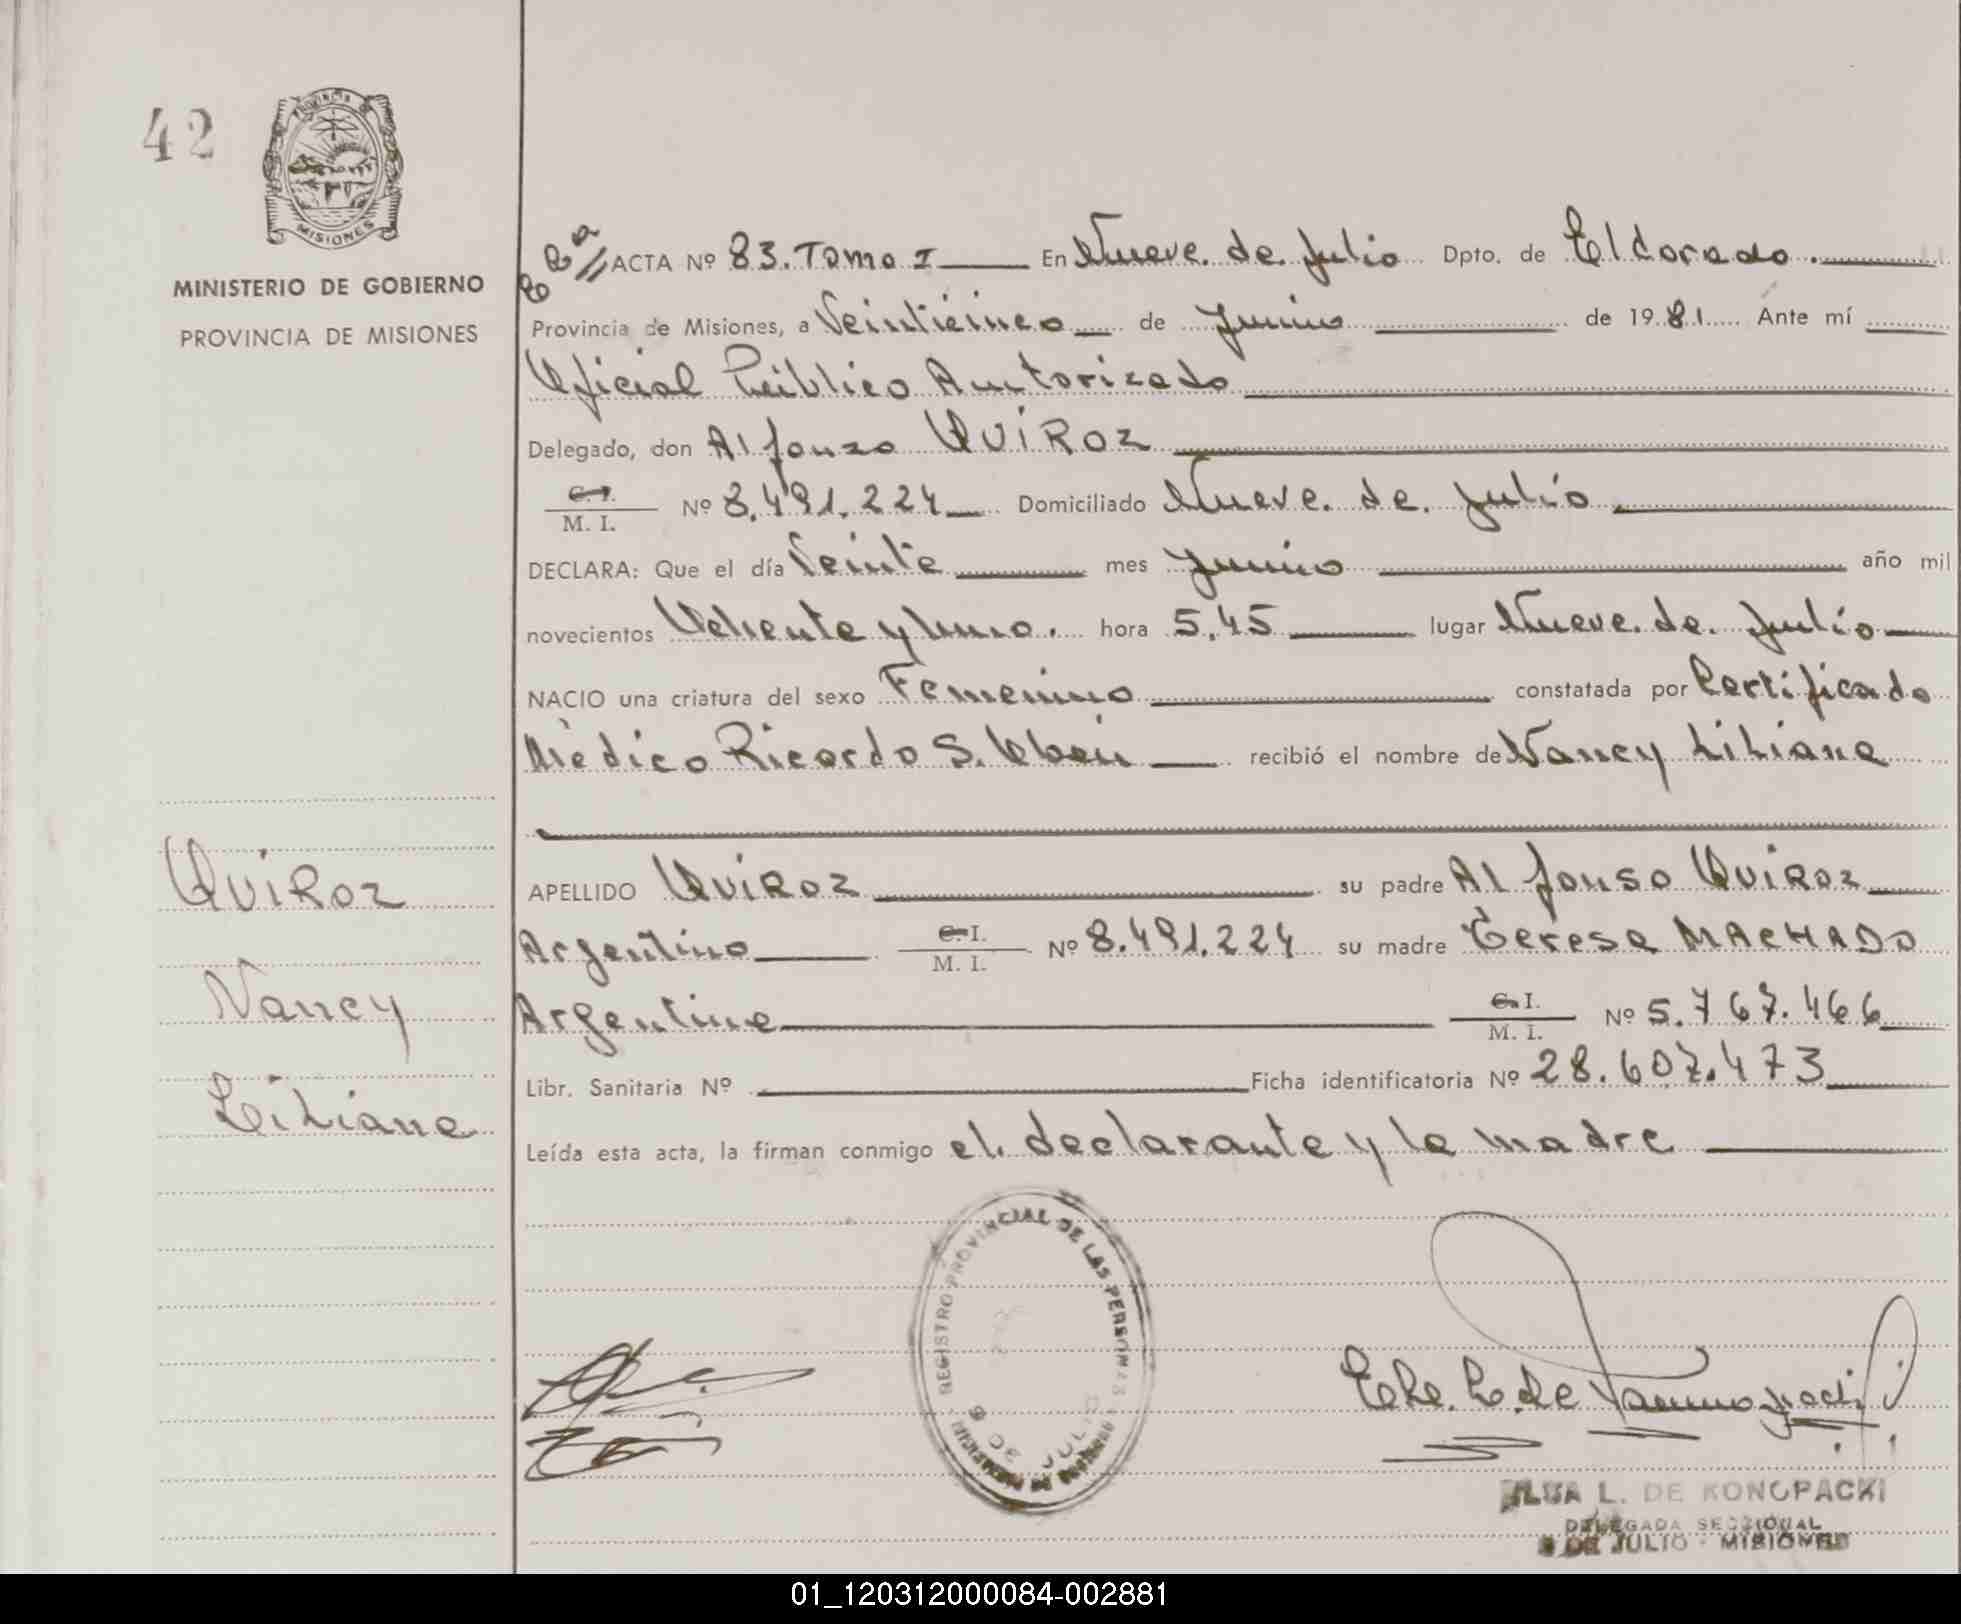 42
PROVINCIA DE
MISIONES
MINISTERIO DE GOBIERNO
PROVINCIA DE MISIONES
ACTA Nº 83. Tomo I En Nueve. de. Julio Dpto. de Eldorado.
Provincia de Misiones, a Veinticinco de Junio de 1981 Ante mí
Oficial Público Autorizado
Delegado, don Alfonso QUIROZ
C. I.
M. I. Nº 8.491.224 Domiciliado Nueve. de. Julio
DECLARA: Que el día Veinte mes Junio año mil
novecientos Ochenta y uno. hora 5,45 lugar Nueve. de. Julio
NACIO una criatura del sexo Femenino constatada por Certificado
Mèdico Ricardo S. recibió el nombre de Nancy Liliana
APELLIDO QUIROZ su padre Alfonso QUIROZ
Argentino C. I.
M. I. Nº 8.491.224 su madre Teresa MACHADO
Argentina C. I.
M. I. Nº 5.767.466
Libr. Sanitaria Nº Ficha identificatoria Nº 28.607.473
Leída esta acta, la firman conmigo el. declarante y la madre
QUIROZ
Nancy
Liliana
REGISTRO PROVINCIAL DE LAS PERSONAS
9 DE JULIO
L. DE KONOPACKI
DELEGADA SECCIONAL
9 DE JULIO - MISIONES
01_120312000084-002881